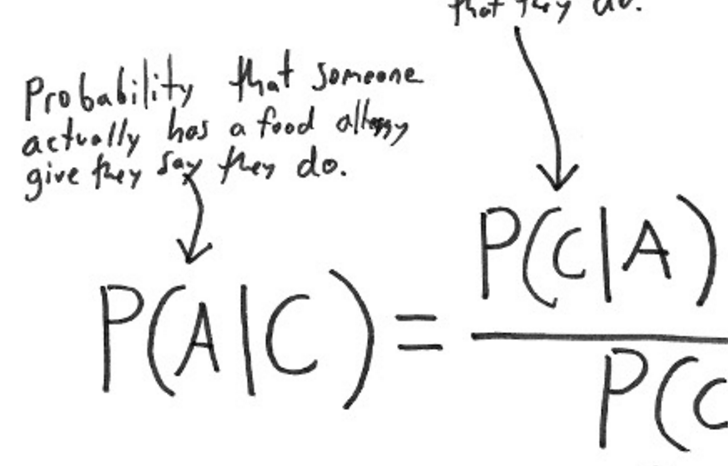 that they do.
Probability that someone
actually has a food allergy
give they say they do.
P(A|C) = P(C|A)
P(C